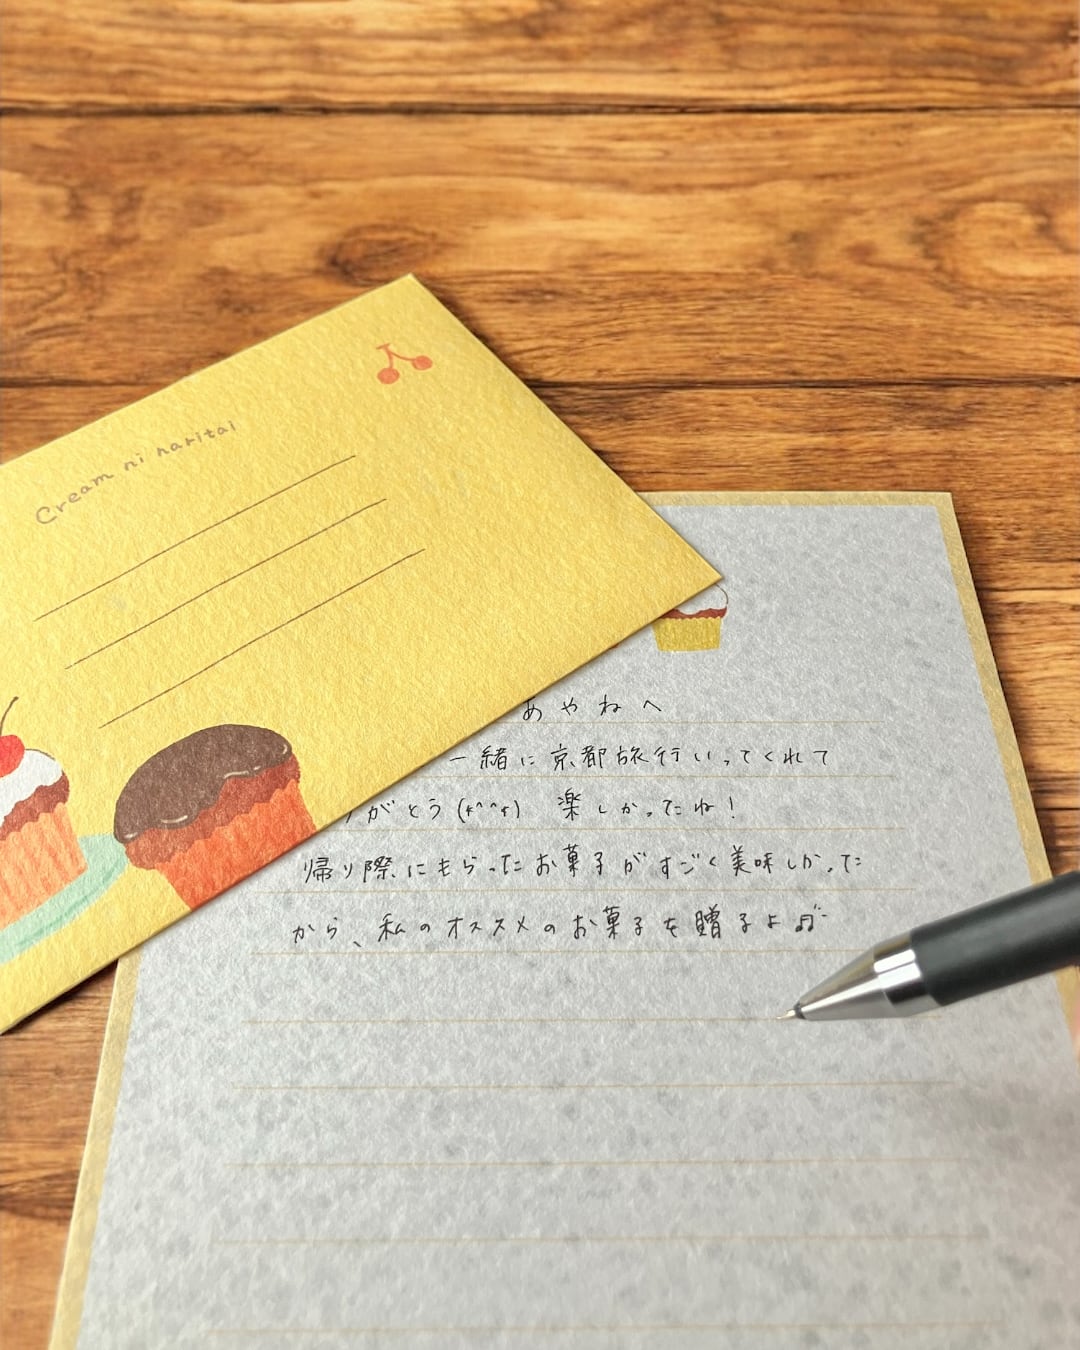 Cream ni naritai
あやねへ
一緒に京都旅行いってくれて
がとう(*^^*) 楽しかったね!
帰り際にもらったお菓子がすごく美味しかった
から、私のオススメのお菓子を贈るよ♬